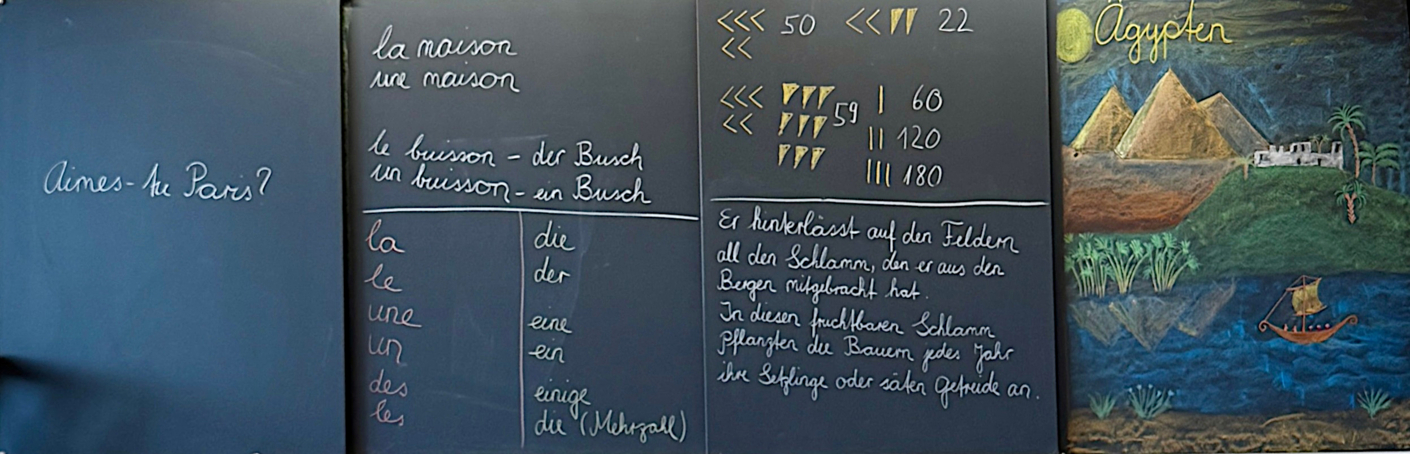 Aimes-tu Paris?
la maison
une maison
le buisson - der Busch
un buisson - ein Busch
la die
le der
une eine
un ein
des einige
les die (Mehrzahl)
50 22
59 60
120
180
Er hinterlässt auf den Feldern
all den Schlamm, den er aus den
Bergen mitgebracht hat.
In diesen fruchtbaren Schlamm
pflanzten die Bauern jedes Jahr
ihre Setzlinge oder säten Getreide an.
Ägypten